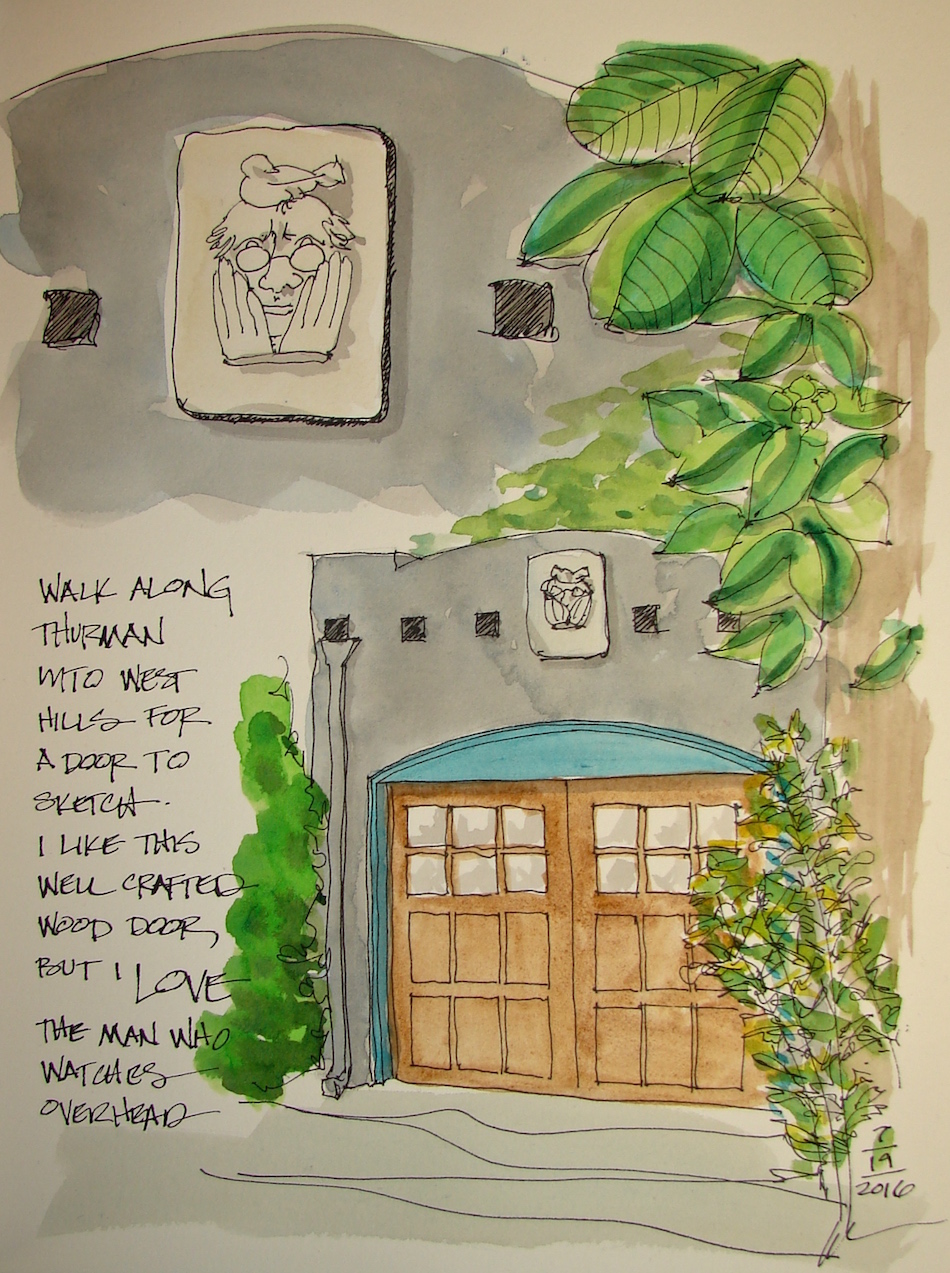 WALK ALONG
THURMAN
INTO WEST
HILLS FOR
A DOOR TO
SKETCH.
I LIKE THIS
WELL CRAFTED
WOOD DOOR,
BUT I LOVE
THE MAN WHO
WATCHES
OVERHEAD
7
19
2016